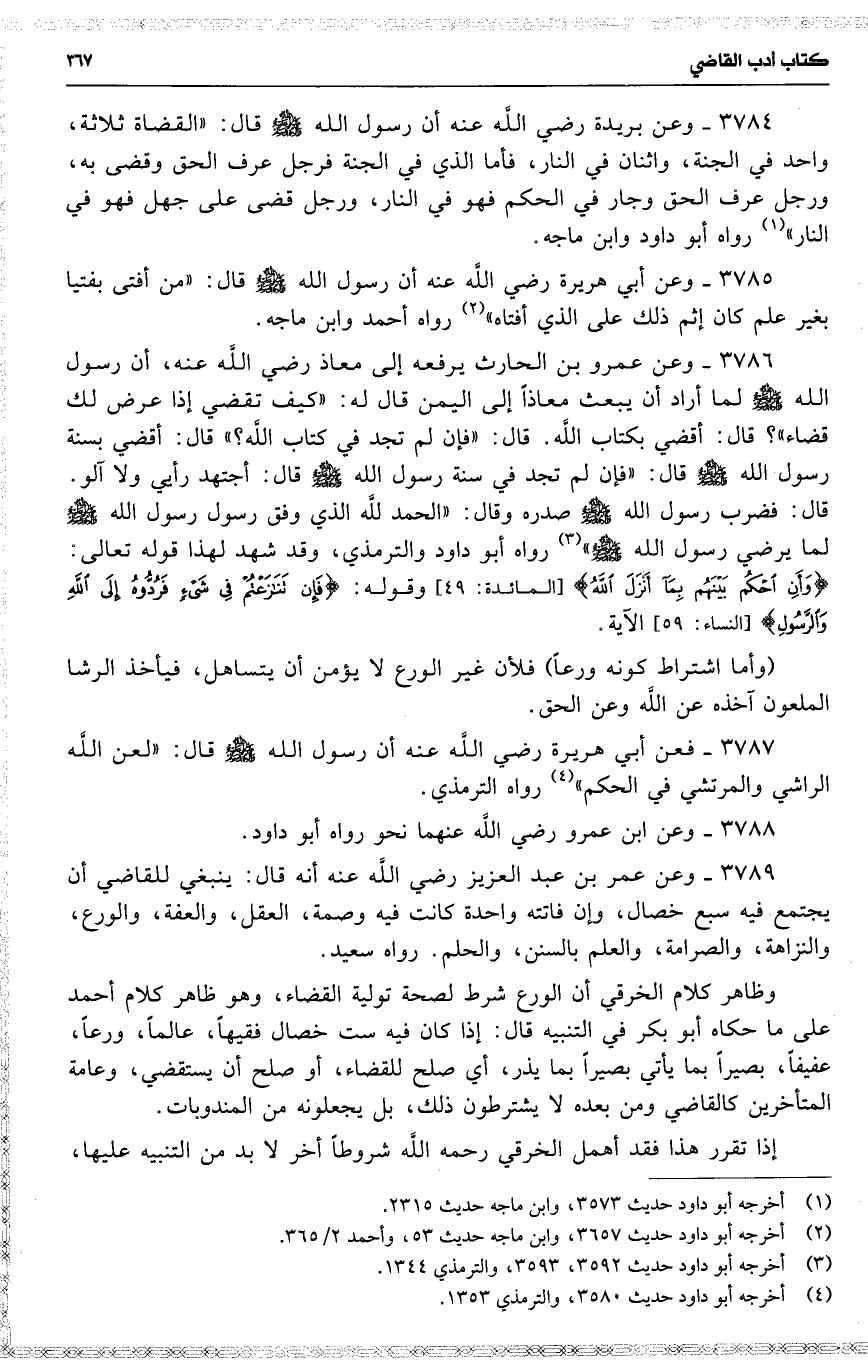 كتاب أدب القاضي ٣٦٧
٣٧٨٤ ـ وعن بريدة رضي اللَّه عنه أن رسول الله ﷺ قال: «القضاة ثلاثة،
واحد في الجنة، واثنان في النار، فأما الذي في الجنة فرجل عرف الحق وقضى به،
ورجل عرف الحق وجار في الحكم فهو في النار، ورجل قضى على جهل فهو في
النار»(١) رواه أبو داود وابن ماجه.
٣٧٨٥ ـ وعن أبي هريرة رضي اللَّه عنه أن رسول الله ﷺ قال: «من أفتى بفتيا
بغير علم كان إثم ذلك على الذي أفتاه»(٢) رواه أحمد وابن ماجه.
٣٧٨٦ ـ وعن عمرو بن الحارث يرفعه إلى معاذ رضي اللَّه عنه، أن رسول
الله ﷺ لما أراد أن يبعث معاذاً إلى اليمن قال له: «كيف تقضي إذا عرض لك
قضاء»؟ قال: أقضي بكتاب اللَّه. قال: «فإن لم تجد في كتاب اللَّه؟» قال: أقضي بسنة
رسول الله ﷺ قال: «فإن لم تجد في سنة رسول الله ﷺ قال: أجتهد رأيي ولا آلو.
قال: فضرب رسول الله ﷺ صدره وقال: «الحمد للَّه الذي وفق رسول رسول الله ﷺ
لما يرضي رسول الله ﷺ»(٣) رواه أبو داود والترمذي، وقد شهد لهذا قوله تعالى:
﴿وَأَنِ ٱحْكُم بَيْنَهُم بِمَآ أَنزَلَ ٱللَّهُ﴾ [المائدة: ٤٩] وقوله: ﴿فَإِن تَنَٰزَعْتُمْ فِى شَىْءٍ فَرُدُّوهُ إِلَى ٱللَّهِ
وَٱلرَّسُولِ﴾ [النساء: ٥٩] الآية.
(وأما اشتراط كونه ورعاً) فلأن غير الورع لا يؤمن أن يتساهل، فيأخذ الرشا
الملعون آخذه عن اللَّه وعن الحق.
٣٧٨٧ ـ فعن أبي هريرة رضي اللَّه عنه أن رسول الله ﷺ قال: «لعن اللَّه
الراشي والمرتشي في الحكم»(٤) رواه الترمذي.
٣٧٨٨ ـ وعن ابن عمرو رضي اللَّه عنهما نحو رواه أبو داود.
٣٧٨٩ ـ وعن عمر بن عبد العزيز رضي اللَّه عنه أنه قال: ينبغي للقاضي أن
يجتمع فيه سبع خصال، وإن فاتته واحدة كانت فيه وصمة، العقل، والعفة، والورع،
والنزاهة، والصرامة، والعلم بالسنن، والحلم. رواه سعيد.
وظاهر كلام الخرقي أن الورع شرط لصحة تولية القضاء، وهو ظاهر كلام أحمد
على ما حكاه أبو بكر في التنبيه قال: إذا كان فيه ست خصال فقيهاً، عالماً، ورعاً،
عفيفاً، بصيراً بما يأتي بصيراً بما يذر، أي صلح للقضاء، أو صلح أن يستقضي، وعامة
المتأخرين كالقاضي ومن بعده لا يشترطون ذلك، بل يجعلونه من المندوبات.
إذا تقرر هذا فقد أهمل الخرقي رحمه اللَّه شروطاً أخر لا بد من التنبيه عليها،
(١) أخرجه أبو داود حديث ٣٥٧٣، وابن ماجه حديث ٢٣١٥.
(٢) أخرجه أبو داود حديث ٣٦٥٧، وابن ماجه حديث ٥٣، وأحمد ٣٦٥/٢.
(٣) أخرجه أبو داود حديث ٣٥٩٢، ٣٥٩٣، والترمذي ١٣٤٤.
(٤) أخرجه أبو داود حديث ٣٥٨٠، والترمذي ١٣٥٣.